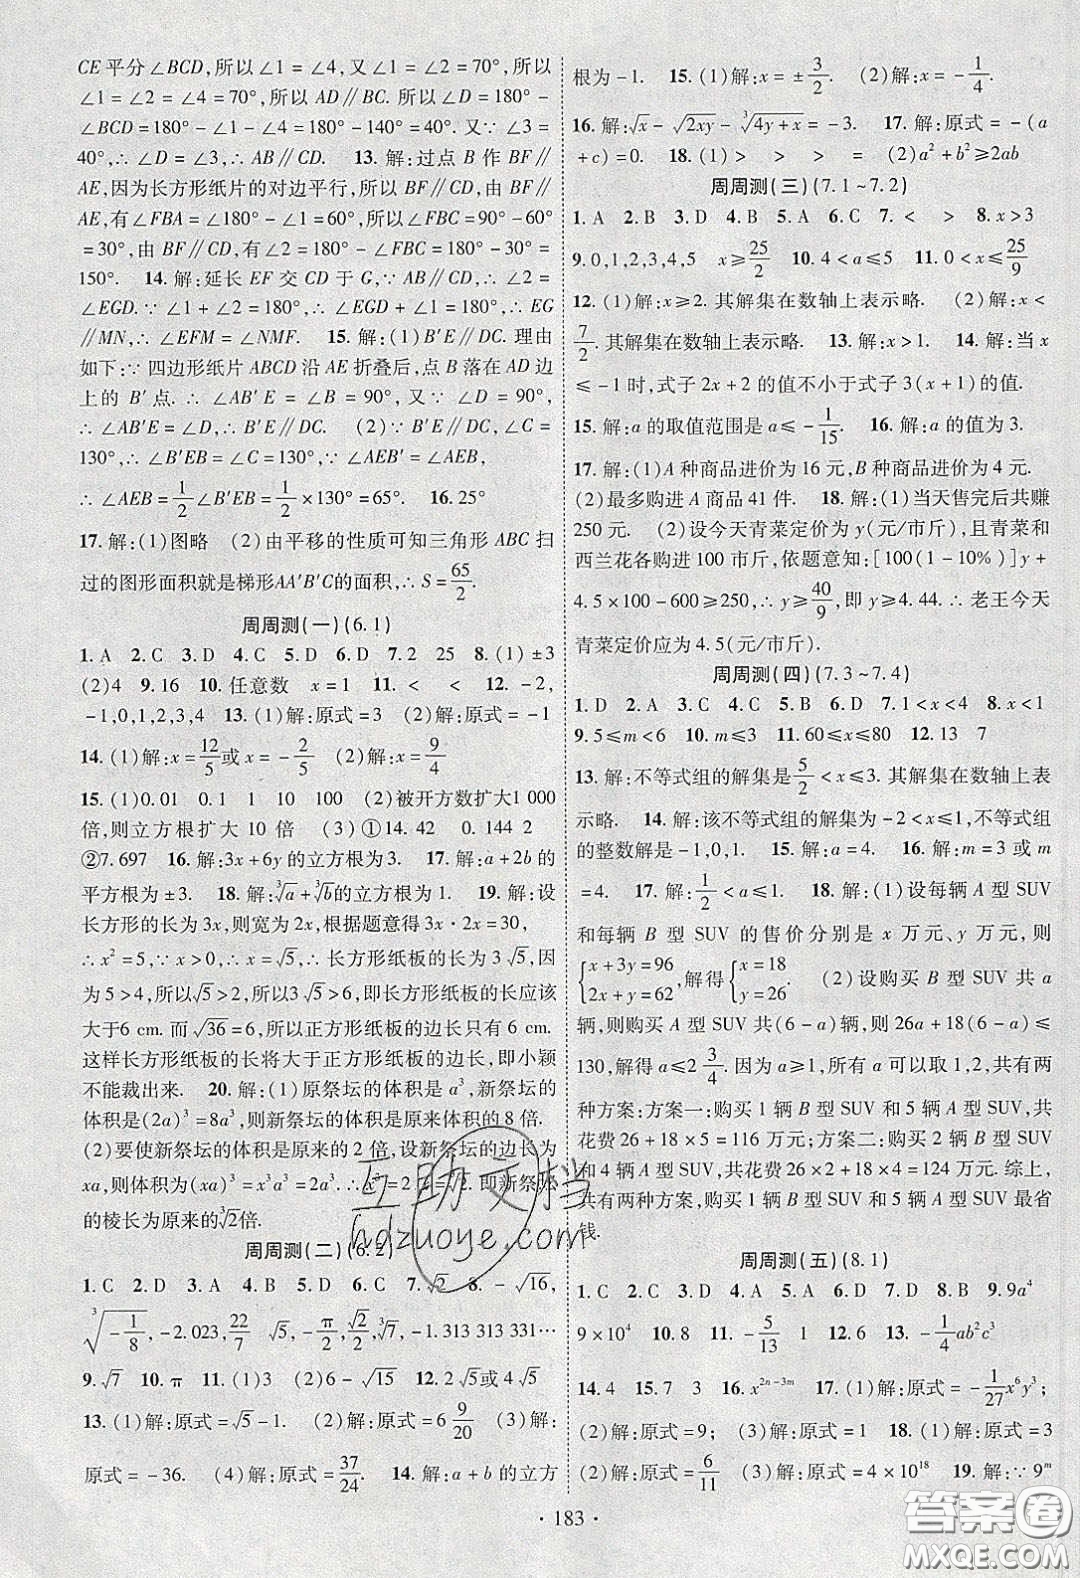 CE平分∠BCD,所以∠1=∠4,又∠1=∠2=70°,所以
∠1=∠2=∠4=70°,所以AD∥BC.所以∠D=180°-
∠BCD=180°-∠1-∠4=180°-140°=40°.又∵∠3=
40°,∴∠D=∠3,∴AB∥CD. 13.解:过点B作BF∥
AE,因为长方形纸片的对边平行,所以BF∥CD,由BF∥
AE,有∠FBA=∠180°-∠1=60°,所以∠FBC=90°-60°
=30°,由BF∥CD,有∠2=180°-∠FBC=180°-30°=
150°. 14.解:延长EF交CD于G,∵AB∥CD,∴∠2=
∠EGD.∵∠2+∠1=180°,∴∠EGD+∠1=180°,∴EG
∥MN,∴∠EFM=∠NMF. 15.解:(1)B'E∥DC.理由
如下:∵四边形纸片ABCD沿AE折叠后,点B落在AD边
上的B'点.∴∠AB'E=∠B=90°,又∵∠D=90°,
∴∠AB'E=∠D,∴B'E∥DC. (2)∵B'E∥DC,∠C=
130°,∴∠B'EB=∠C=130°,∵∠AEB'=∠AEB,
∴∠AEB=1/2∠B'EB=1/2×130°=65°. 16.25°
17.解:(1)图略 (2)由平移的性质可知三角形ABC扫
过的图形面积就是梯形AA'B'C的面积,∴S=65/2.
周周测(一)(6.1)
1.A 2.C 3.D 4.C 5.D 6.D 7.2 25 8.(1)±3
(2)4 9.16 10.任意数 x=1 11.< < 12.-2,
-1,0,1,2,3,4 13.(1)解:原式=3 (2)原式=-1
14.(1)解:x=12/5或x=-2/5 (2)解:x=9/4
15.(1)0.01 0.1 1 10 100 (2)被开方数扩大1 000
倍,则立方根扩大10倍 (3)①14.42 0.144 2
②7.697 16.解:3x+6y的立方根为3. 17.解:a+2b的
平方根为±3. 18.解:∛a+∛b的立方根为1. 19.解:设
长方形的长为3x,则宽为2x,根据题意得3x·2x=30,
∴x²=5,∵x>0,∴x=√5,∴长方形纸板的长为3√5,因
为5>4,所以√5>2,所以3√5>6,即长方形纸板的长应该
大于6 cm.而√36=6,所以正方形纸板的边长只有6 cm.
这样长方形纸板的长将大于正方形纸板的边长,即小颖
不能裁出来. 20.解:(1)原祭坛的体积是a³,新祭坛
的体积是(2a)³=8a³,则新祭坛的体积是原来体积的8倍.
(2)要使新祭坛的体积是原来的2倍,设新祭坛的边长为
xa,则体积为(xa)³=x³a³=2a³.∴x³=2
的棱长为原来的∛2倍.
周周测(二)(6.2)
1.C 2.D 3.A 4.B 5.D 6.C 7.√2 8.-√16,
∛(-1/8),-2.023,22/7 √5,-π/2,√2,∛7,-1.313 313 331…
9.√7 10.π 11.(1)3 (2)6-√15 12.2√5或4√5
13.(1)解:原式=√5-1. (2)解:原式=6 9/20 (3)解:
原式=-36. (4)解:原式=37/24. 14.解:a+b的立方
根为-1. 15.(1)解:x=±3/2. (2)解:x=-1/4.
16.解:√x-√2xy-∛(4y+x)=-3. 17.解:原式=-(a
+c)=0. 18.(1)> > > = (2)a²+b²≥2ab
周周测(三)(7.1~7.2)
1.A 2.B 3.D 4.B 5.A 6.C 7.< > 8.x>3
9.0,1,2,3,4,5 x≥25/2 10.4<a≤5 11.0<x≤25/9
12.(1)解:x≥2.其解集在数轴上表示略. (2)解:x<
7/2.其解集在数轴上表示略. 13.解:x>1. 14.解:当x
≤-1时,式子2x+2的值不小于式子3(x+1)的值.
15.解:a的取值范围是a≤-1/15. 16.解:a的值为3.
17.解:(1)A种商品进价为16元,B种商品进价为4元.
(2)最多购进A商品41件. 18.解:(1)当天售完后共赚
250元. (2)设今天青菜定价为y(元/市斤),且青菜和
西兰花各购进100市斤,依题意知:[100(1-10%)]y+
4.5×100-600≥250,∴y≥40/9,即y≥4.44.∴老王今天
青菜定价应为4.5(元/市斤).
周周测(四)(7.3~7.4)
1.D 2.A 3.C 4.C 5.B 6.A 7.1<x<4 8.x<1
9.5≤m<6 10.m≤3 11.60≤x≤80 12.13 7
13.解:不等式组的解集是5/2<x≤3.其解集在数轴上表
示略. 14.解:该不等式组的解集为-2<x≤1,不等式组
的整数解是-1,0,1. 15.解:a=4. 16.解:m=3或m
=4. 17.解:1/2<a≤1. 18.解:(1)设每辆A型SUV
和每辆B型SUV的售价分别是x万元、y万元,则
{x+3y=96 2x+y=62,解得{x=18 y=26. (2)设购买B型SUV共a
辆,则购买A型SUV共(6-a)辆,则26a+18(6-a)≤
130,解得a≤2 3/4.因为a≥1,所有a可以取1,2,共有两
种方案:方案一:购买1辆B型SUV和5辆A型SUV,共
花费26+18×5=116万元;方案二:购买2辆B型SUV
和4辆A型SUV,共花费26×2+18×4=124万元.综上,
共有两种方案,购买1辆B型SUV和5辆A型SUV最省
钱.
周周测(五)(8.1)
1.C 2.C 3.D 4.A 5.A 6.C 7.D 8.B 9.9a⁴
9×10⁴ 10.8 11.-5/13 1 12.6 13.-1/4ab²c³
14.4 15.7 3 16.x²ⁿ⁻³ᵐ 17.(1)解:原式=-1/27x⁶y³;
(2)解:原式=9; (3)解:原式=1 18.(1)解:原式=3
(2)解:原式=6/11 (3)解:原式=4×10¹⁸ 19.解:∵9ᵐ
·183·
互助文档
hdzuoye.com
答案圈
MXQE.COM